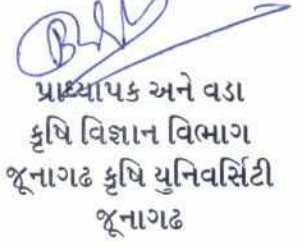 પ્રાધ્યાપક અને વડા
કૃષિ વિજ્ઞાન વિભાગ
જૂનાગઢ કૃષિ યુનિવર્સિટી
જૂનાગઢ